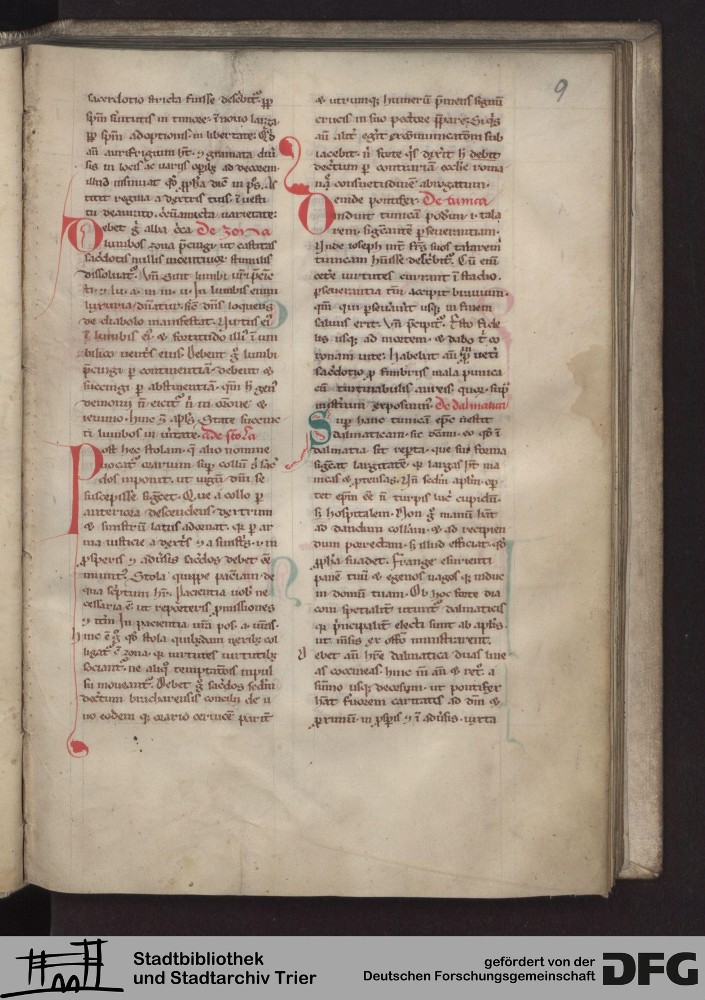 9
sacerdotio stricta fuisse describit᷑ ꝓp
spm̄ suitutis in timore · ĩ nouo larga
ꝓp spm̄ adoptionis in libertate : Qd̓
aū aurifrigium hr̄t · ⁊ gramata diu̓
sis in locis ac uariis opib᷒ ad decorem
illud insinuat qd̓ ꝓph̓a dic̄ in ps̓ . As
titit regina a dextris tuis ĩ uesti
tu deaurato . circūamicta uarietate :
Debet g̓ alba circa De zona
lumbos zona p̄cingi · ut castitas
sac̓dotis nullis incentiuoꝝ stimulis
dissoluat᷑ .
luxuria dn̄atur · sic̄ dn̄s loquens
de diabolo manifestat . Uirtus ei᷒
ĩ lumbis ei᷒ · ⁊ fortitudo illi᷒ ĩ um
bilico uentris eius . Debent g̓ lumbi
p̄cingi ꝑ continentiā · debent ⁊
succingi ꝑ abstinentiā · qm̄ h̓ gen᷒
demonii n̄ eicit᷑ n̓ in or̄one ⁊
ieiunio · hinc apl̓s . State succinc
ti lumbos in ūitate . de stola
Post hec stolam · q̄ alio nomine
uocat᷑ orarium sup̱ collū g̓ sac̓
dos inponit · ut iugū dn̄i se
suscepisse significet . Que a collo ꝑ
anteriora descendens · dextrum
⁊ sinistrū latus adornat . qr̓ ꝑ ar
ma iusticie a dextris ⁊ a sinistris · i· in
ꝓsperis ⁊ adu̓sis sac̓dos debet ēe
munit᷒ . Stola quippe pacīam de
signat
cessaria ē · ut reportetis ꝓmissiones
⁊ itm̄ In pacientia ur̄a pos . a . ur̄as .
hinc ē g̓ qd̓ stola quibusdam nexib᷒ col
ligat᷑ c̄ zona · qr̓ uirtutes uirtutib᷒
sociant᷑ · ne aliq᷒ temptatōis inpul
su moueant᷑ . Debet g̓ sac̓dos sc̄dm̄
decretum bracharensis concilii de u
no eodem q̓ orario ceruicē parit̓
⁊ utrumq᷒ humerū p̄mens signū
crucis in suo pectore p̄parare . Siq̓s
aū alit̓ egerit excōmunicatōni sub
iacebit · n̓ forte q̓s dixerit h̓ debit
decretum ꝑ contrariā eccl̓ie roma
ne consuetudinē abrogatum ·
Deinde pontifex De tunica
induit tunicā poderim · i · tala
rem · significantē ꝑseuerantiam .
Unde ioseph int̓ frēs suos talarem
tunicam habuisse describit᷑ . Cū enī
cetere uirtutes currant ĩ stadio ·
ꝑseuerantia tn̄ accipit brauium ·
qm̄ qui ꝑseuerau̓it usq᷒ in finem
saluus erit . Un̄ p̄cipit᷑ . Esto fide
lis usq᷒ ad mortem · ⁊ dabo t̓ co
ronam uite : Habebat aū ueteri
sac̓dotio ꝓ fimbriis mala punica
cū tintinabulis aureis · quoꝝ sup̓i᷒
misticum exposuim᷒ . De dalmatica
Sup̱ hanc tunicā epc̄ uestit
dalmaticam · sic dictam eo qd̓ ĩ
dalmatia sit reperta · que sui forma
significat largitatē · qr̓ largas ht̄ ma
nicas ⁊ ꝓtensas . Un̄ sc̄dm̄ aplm̄ op̄
tet epm̄ ēe n̄ turpis lucri cupidū ·
s̓ hospitalem . Non g̓ manū habeat
ad dandum collam · ⁊ ad recipien
dum porrectam · s̓ illud efficiat · qd̓
ꝓph̓a suadet . Frange esurienti
panē tuū ⁊ egenos uagos q᷒ induc
in domū tuam . Ob hoc forte dia
coni specialit̓ utunt᷑ dalmaticis
qr̓ p̄ncipalit̓ electi sunt ab apl̓is ·
ut mēsis ex officio ministrarent .
Debet aū hr̄e dalmatica duas line
as coccineas · hinc in ān ⁊ ret᷒ · a
sūmo usq᷒ deorsum · ut pontifex
habeat feruorem caritatis ad dm̄ ⁊
ꝓximū · in ꝓspis ⁊ ĩ adu̓sis · iuxta
Stadtbibliothek
und Stadtarchiv Trier
gefördert von der
Deutschen Forschungsgemeinschaft
DFG